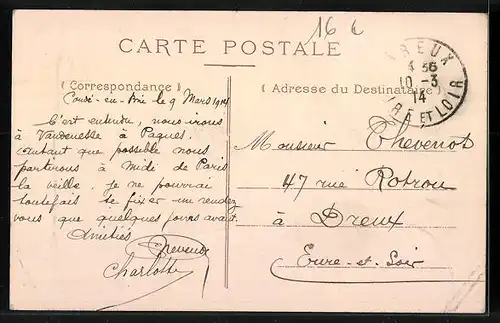 16 c
CARTE POSTALE
(Correspondance)
Condé-en-Brie le 9 Mars 1914
C'est entendu, nous irons
à Vaudenesse à Paques.
Autant que possible nous
partirons à Midi de Paris
la veille. Je ne pourrai
toutefois te fixer un rendez
vous que quelques jours avant.
Amitiés
Charlotte
(Adresse du Destinataire)
DREUX
4 36
10 - 3
14
EURE ET LOIR
Monsieur Thevenot
47 rue Rotrou
à Dreux
Eure-et-Loir